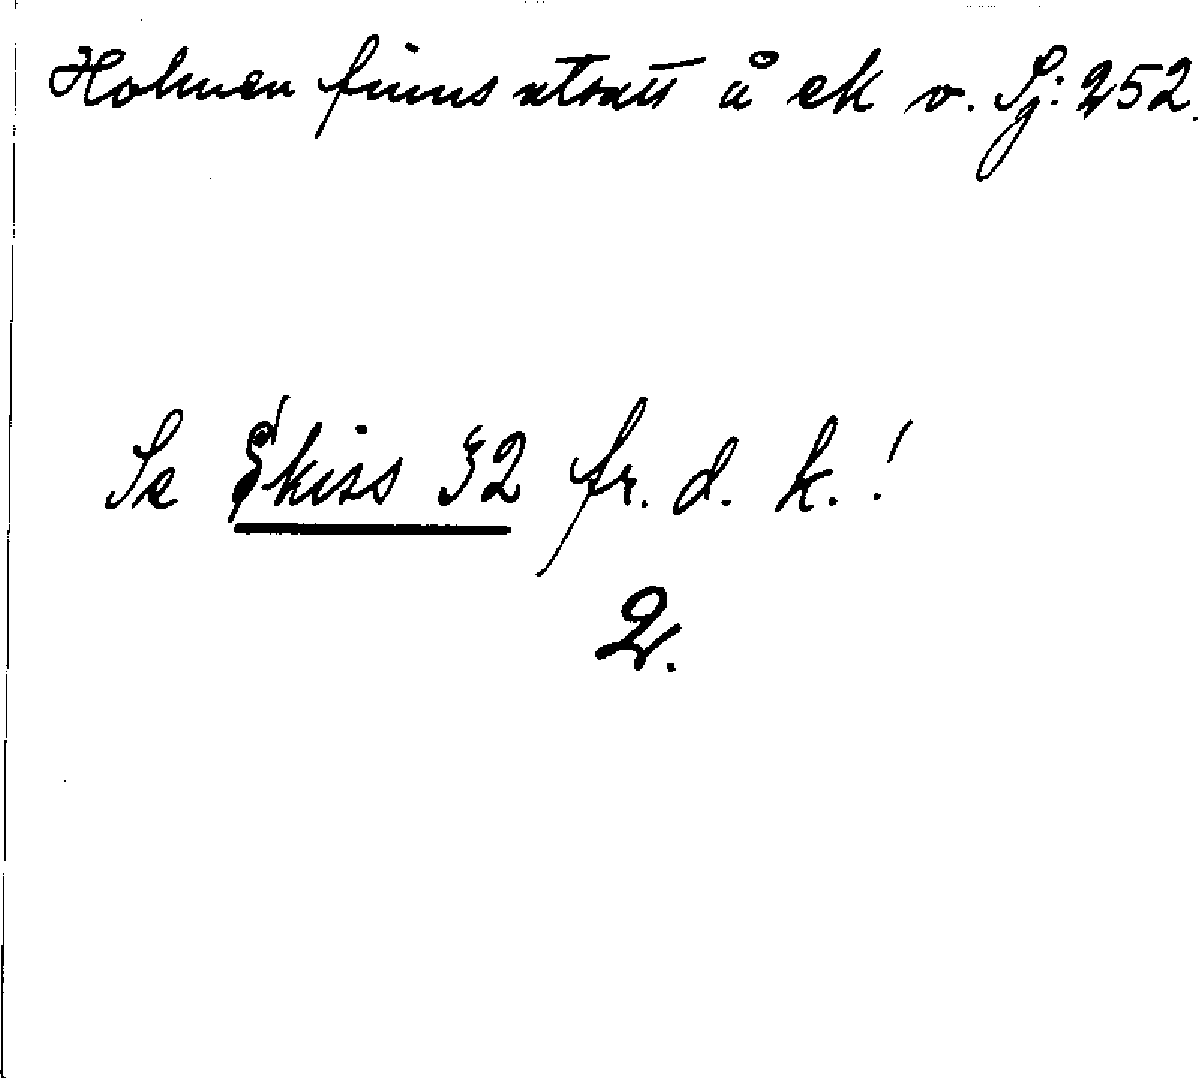 Holmen finns utsatt å ek v. Sj: 252.
Se Skiss 32 fr. d. k.!
2.